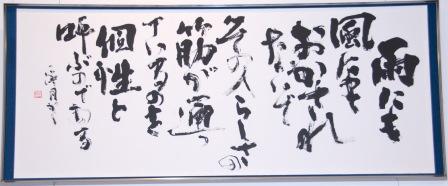 雨にも
風にも
おかされ
ないで
その人らしさの
筋が通っ
ているのを
個性と
呼ぶのである